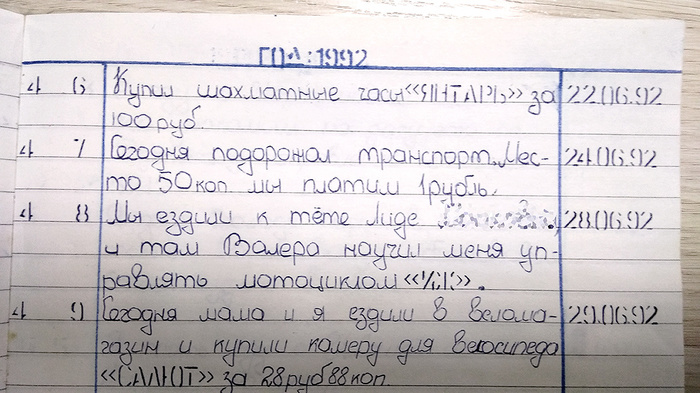 ГОД: 1992
4 6 Купил шахматные часы «ЯНТАРЬ» за 22.06.92
100 руб.
4 7 Сегодня подорожал транспорт. Мес- 24.06.92
то 50 коп мы платим 1 рубль.
4 8 Мы ездили к тёте Лиде 28.06.92
и там Валера научил меня уп-
равлять мотоциклом «».
4 9 Сегодня мама и я ездили в велома- 29.06.92
газин и купили камеру для велосипеда
«САЛЮТ» за 28 руб 88 коп.